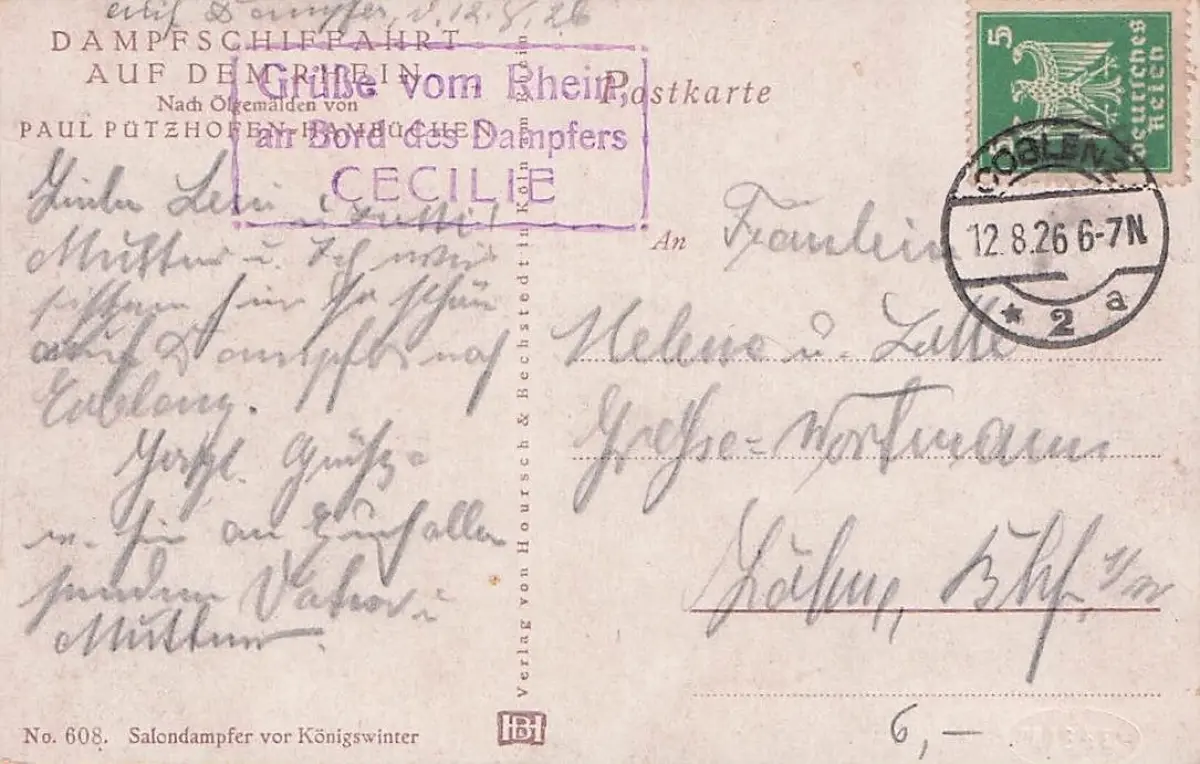 auf Dampfer, d. 12.8.26
DAMPFSCHIFFAHRT
AUF DEM RHEIN
Nach Ölgemälden von
PAUL PÜTZHOFEN-HAMBÜCHEN
Grüße vom Rhein,
an Bord des Dampfers
CECILIE
u
Mutter u. Ich
schön
auf Dampfer nach
Coblenz.
Herzl. Grüße
an Euch allen
senden Vater u
Mutter.
No. 608. Salondampfer vor Königswinter
Verlag von Hoursch & Bechstedt in Köln am Rhein
HB
Postkarte
5
5
Deutsches
Reich
COBLENZ
12.8.26 6-7N
* 2 a
An Fräulein
Helene u.
Wortmann
Bhf.
6,—